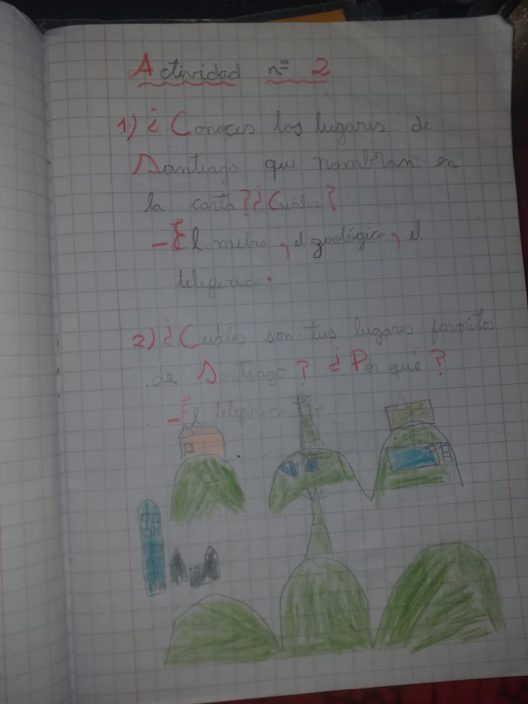 Actividad n° 2
1) ¿Conoces los lugares de
Santiago que nombran en
la carta? ¿Cuáles?
- El metro, el zoológico, el
teleferico.
2) ¿Cuáles son tus lugares favoritos
de Santiago? ¿Por qué?
- El teleferico